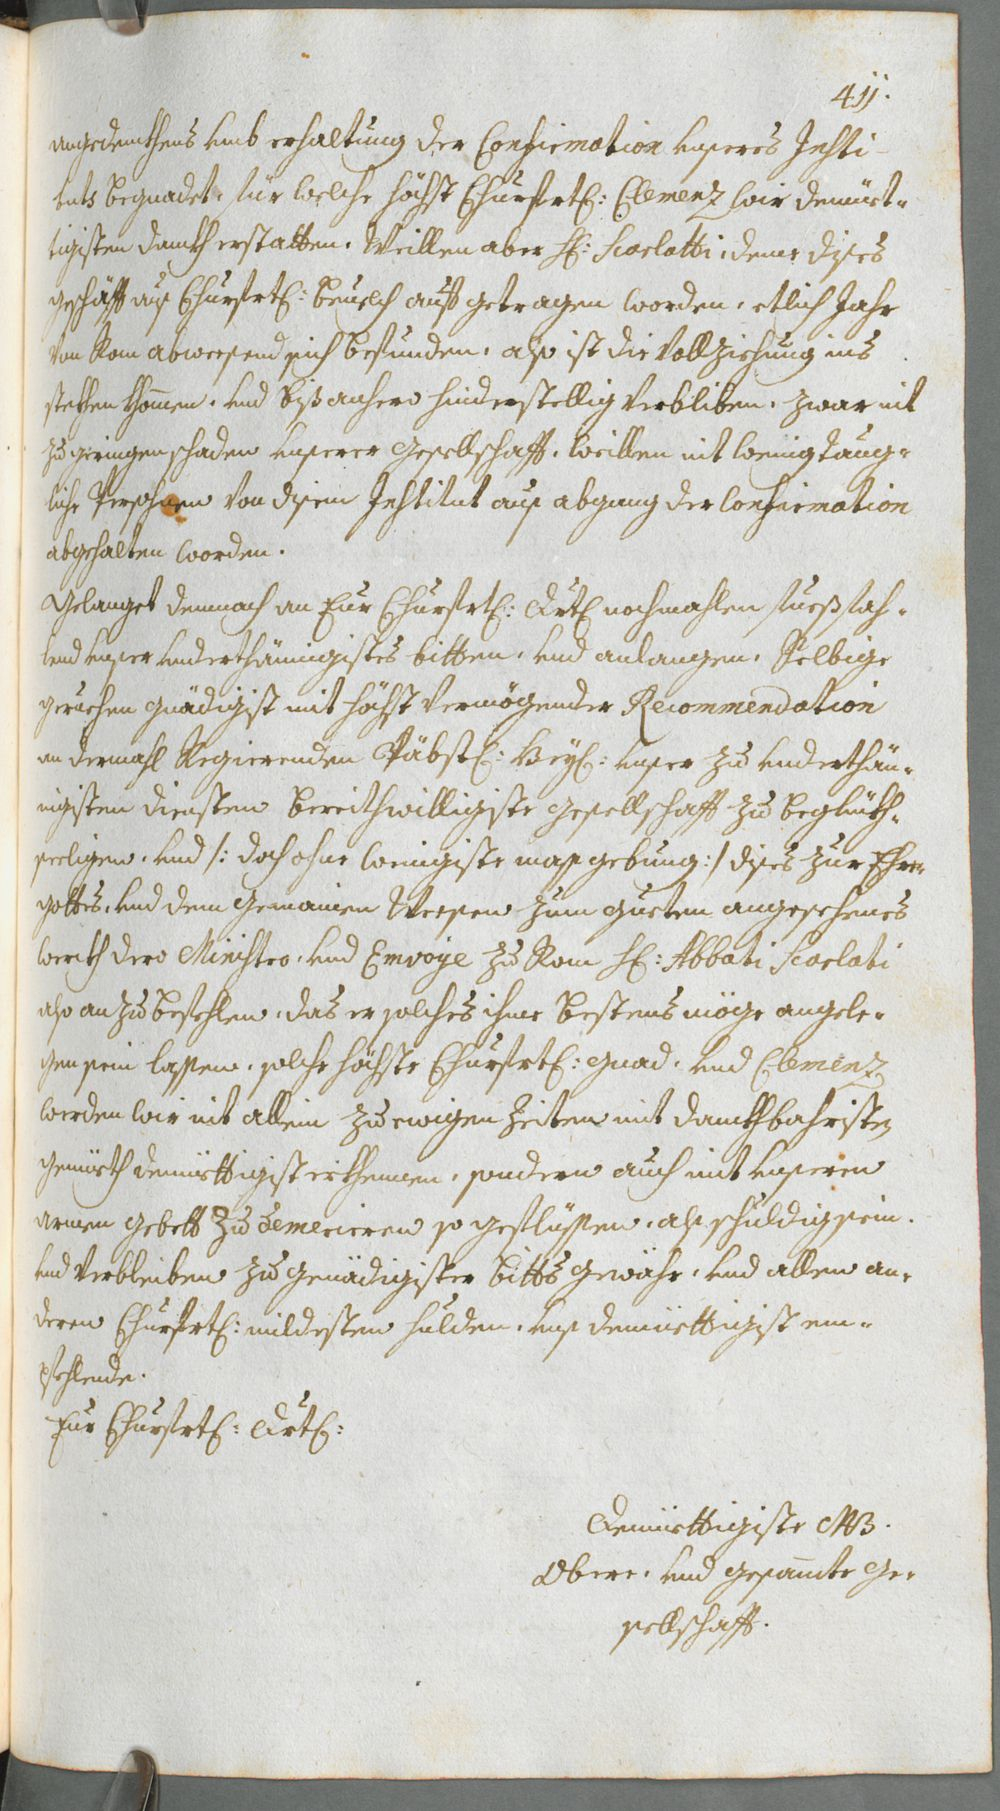 411.
angedenkhens umb erhaltung der Confirmation unseres Insti-
tuts begnadet. für welche höchst Churfrtl: Clemenz wir demüet-
tigisten danckh erstatten. Weillen aber H: Scarlatti, deme dises
geschäfft auß Churfrtl: beuelch auff getragen worden, etlich Jahr
von Rom abweesend sich befunden, also ist die vollziehung ins
steckhen khommen, und biß anhero hinderstellig verbliben, zwar nit
zu geringen schaden unserer gesellschafft, weillen nit wenig taug-
liche Persohnen von disem Institut auß abgang der Confirmation
abgehalten worden.
Gelanget demnach an Eur Churfrtl: Drtl nochmahlen fuesfal-
lend unser underthänigistes bitten, und anlangen, Selbige
geruehen gnädigist mit höchst vermögender Recommendation
an dermahl Regierenden Päbstl: Heyl: unser zu underthä-
nigisten diensten bereithwilligiste gesellschafft zu beglückh-
seeligen, und /: doch ohne wenigiste maß gebung :/ dises zur Ehre
gottes, und dem gemainen Weesen zum guetten angesehenes
werckh dero Ministro, und Envoÿe zu Rom H: Abbati Scarlati
also an zu befehlen, das er solches ihme bestens möge angele-
gen sein lassen, solche höchste Churfrtl: gnad, und Clemenz
werden wir nit allein zu ewigen Zeiten mit danckhbahristen
gemüeth demüettigist erkhennen, sondern auch mit unseren
armen gebett zu demerieren so geflissen, als schuldig sein.
und verbleiben zu genädigister bitts gewähr, und allen an-
deren Churfrtl: mildesten hulden, unß demüettigist em-
pfehlende.
Eur Churfrtl: Drtl:
Demüettigiste MB.
Obere, und gesamte Ge-
sellschafft.